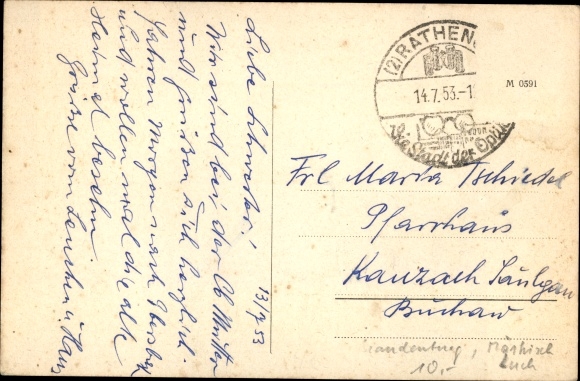 13/7 53
Liebe Schwester!
Wir sind bei der Ob Mutter
und grüßen dich herzlich
fahren Morgen nach
und wollen mal die alte
Heimat besehn.
Grüße von Lenchen u. Hans
(2) RATHENO
14.7.53.-1
Die Stadt der Opti
M 0591
Frl Marta Tschiedel
Pfarrhaus
Kanzach Saulgau
Buchau
Brandenburg, Märkisch
Buch
10.-